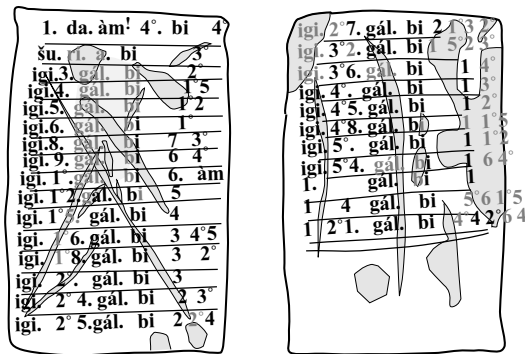 1. da. àm! 4°. bi 4°
šu. ri. a. bi 3°
igi.3. gál. bi 2°
igi.4. gál. bi 1°5
igi.5. gál. bi 1°2
igi.6. gál. bi 1°
igi.8. gál. bi 7 3°
igi. 9. gál. bi 6 4°
igi. 1°. gál. bi 6. àm
igi. 1°2. gál. bi 5
igi. 1°5. gál. bi 4
igi. 1°6. gál. bi 3 4°5
igi. 1°8. gál. bi 3 2°
igi. 2°. gál. bi 3
igi. 2°4. gál. bi 2 3°
igi. 2°5. gál. bi 2 2°4
igi. 2°7. gál. bi 2 1°3 2°
igi. 3°2. gál. bi 1 5°2 3°
igi. 3°6. gál. bi 1 4°
igi. 4°. gál. bi 1 3°
igi. 4°5. gál. bi 1 2°
igi. 4°8. gál. bi 1 1°5
igi. 5°. gál. bi 1 1°2
igi. 5°4. gál. bi 1 6 4°
1. gál. bi 1
1 4 gál. bi 5°6 1°5
1 2°1. gál. bi 4°4 2°6 4°